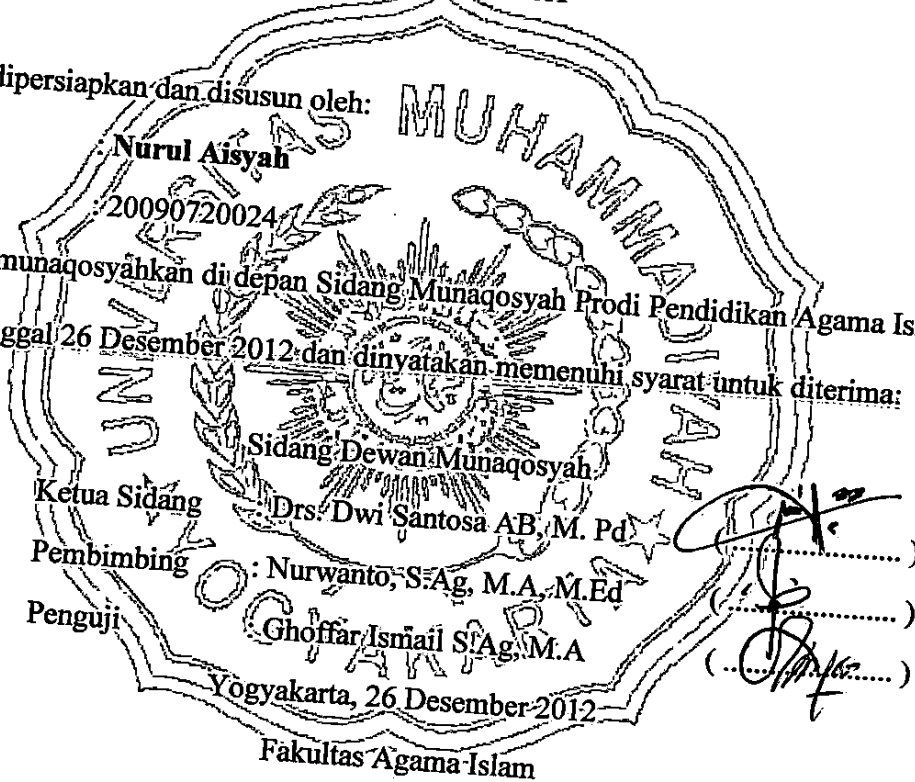 dipersiapkan dan disusun oleh:
: Nurul Aisyah
: 20090720024
munaqosyahkan di depan Sidang Munaqosyah Prodi Pendidikan Agama Is
ggal 26 Desember 2012 dan dinyatakan memenuhi syarat untuk diterima:
Sidang Dewan Munaqosyah
Ketua Sidang : Drs. Dwi Santosa AB, M. Pd (........................ )
Pembimbing : Nurwanto, S.Ag, M.A, M.Ed (........................ )
Penguji : Ghoffar Ismail S.Ag, M.A (........................ )
Yogyakarta, 26 Desember 2012
Fakultas Agama Islam
UNIVERSITAS MUHAMMADIYAH
YOGYAKARTA